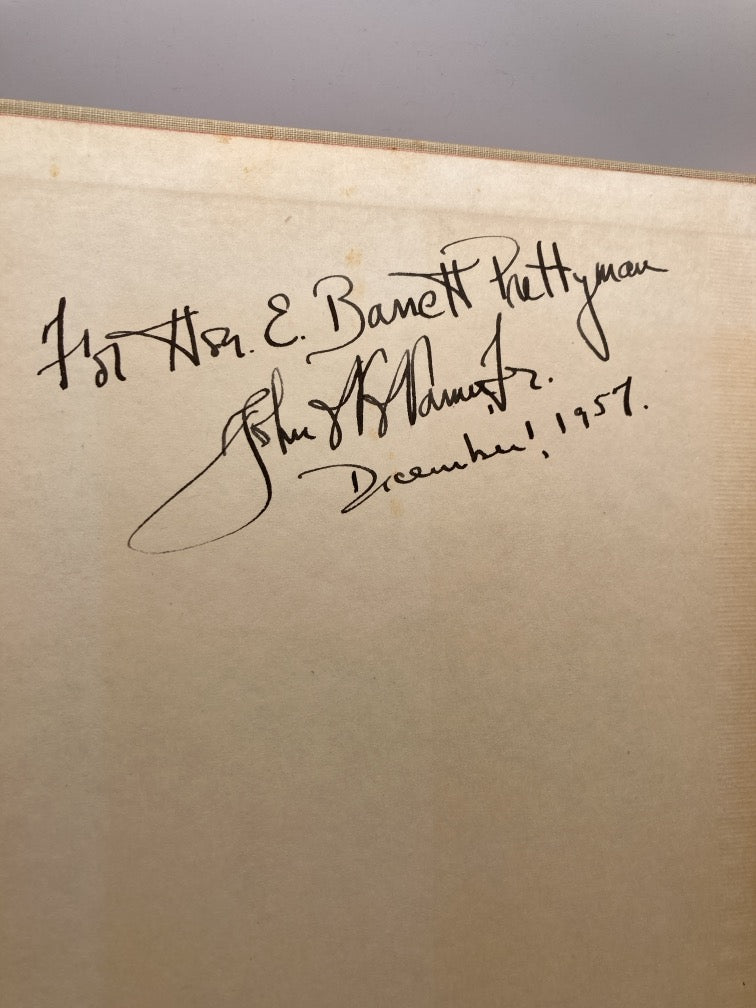 For Hon. E. Barrett Prettyman
John Jr.
December, 1957.